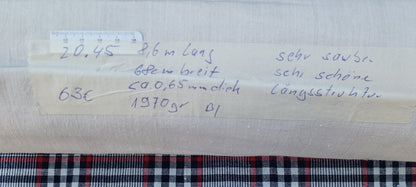 20.45 8,6 m lang sehr sauber
68cm breit sehr schöne
63€ ca 0,65mm dick Längsstruktur
1970gr